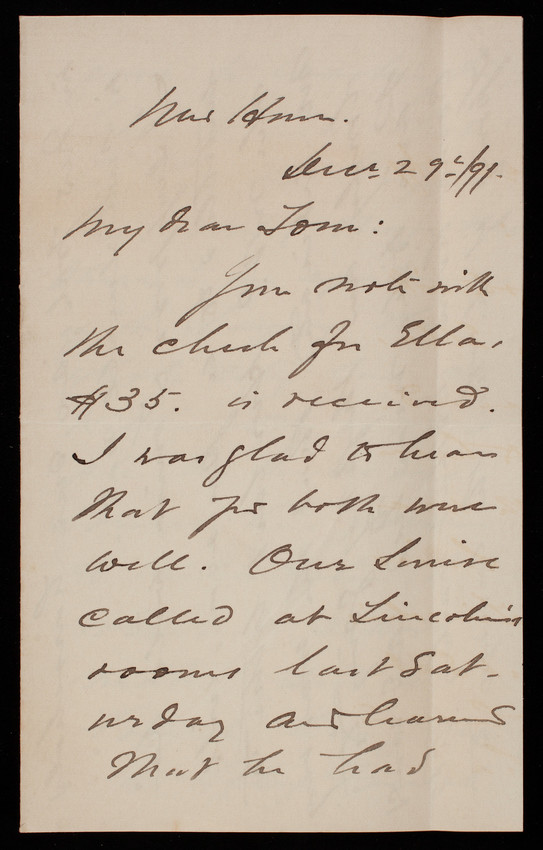 New Haven.
Decr. 29th/91.
My dear Tom:
Your note with
the check for Ella,
$35. is received.
I was glad to hear
that you both were
well. Our Louise
called at Lincoln's
rooms last Sat-
urday and learned
that he had